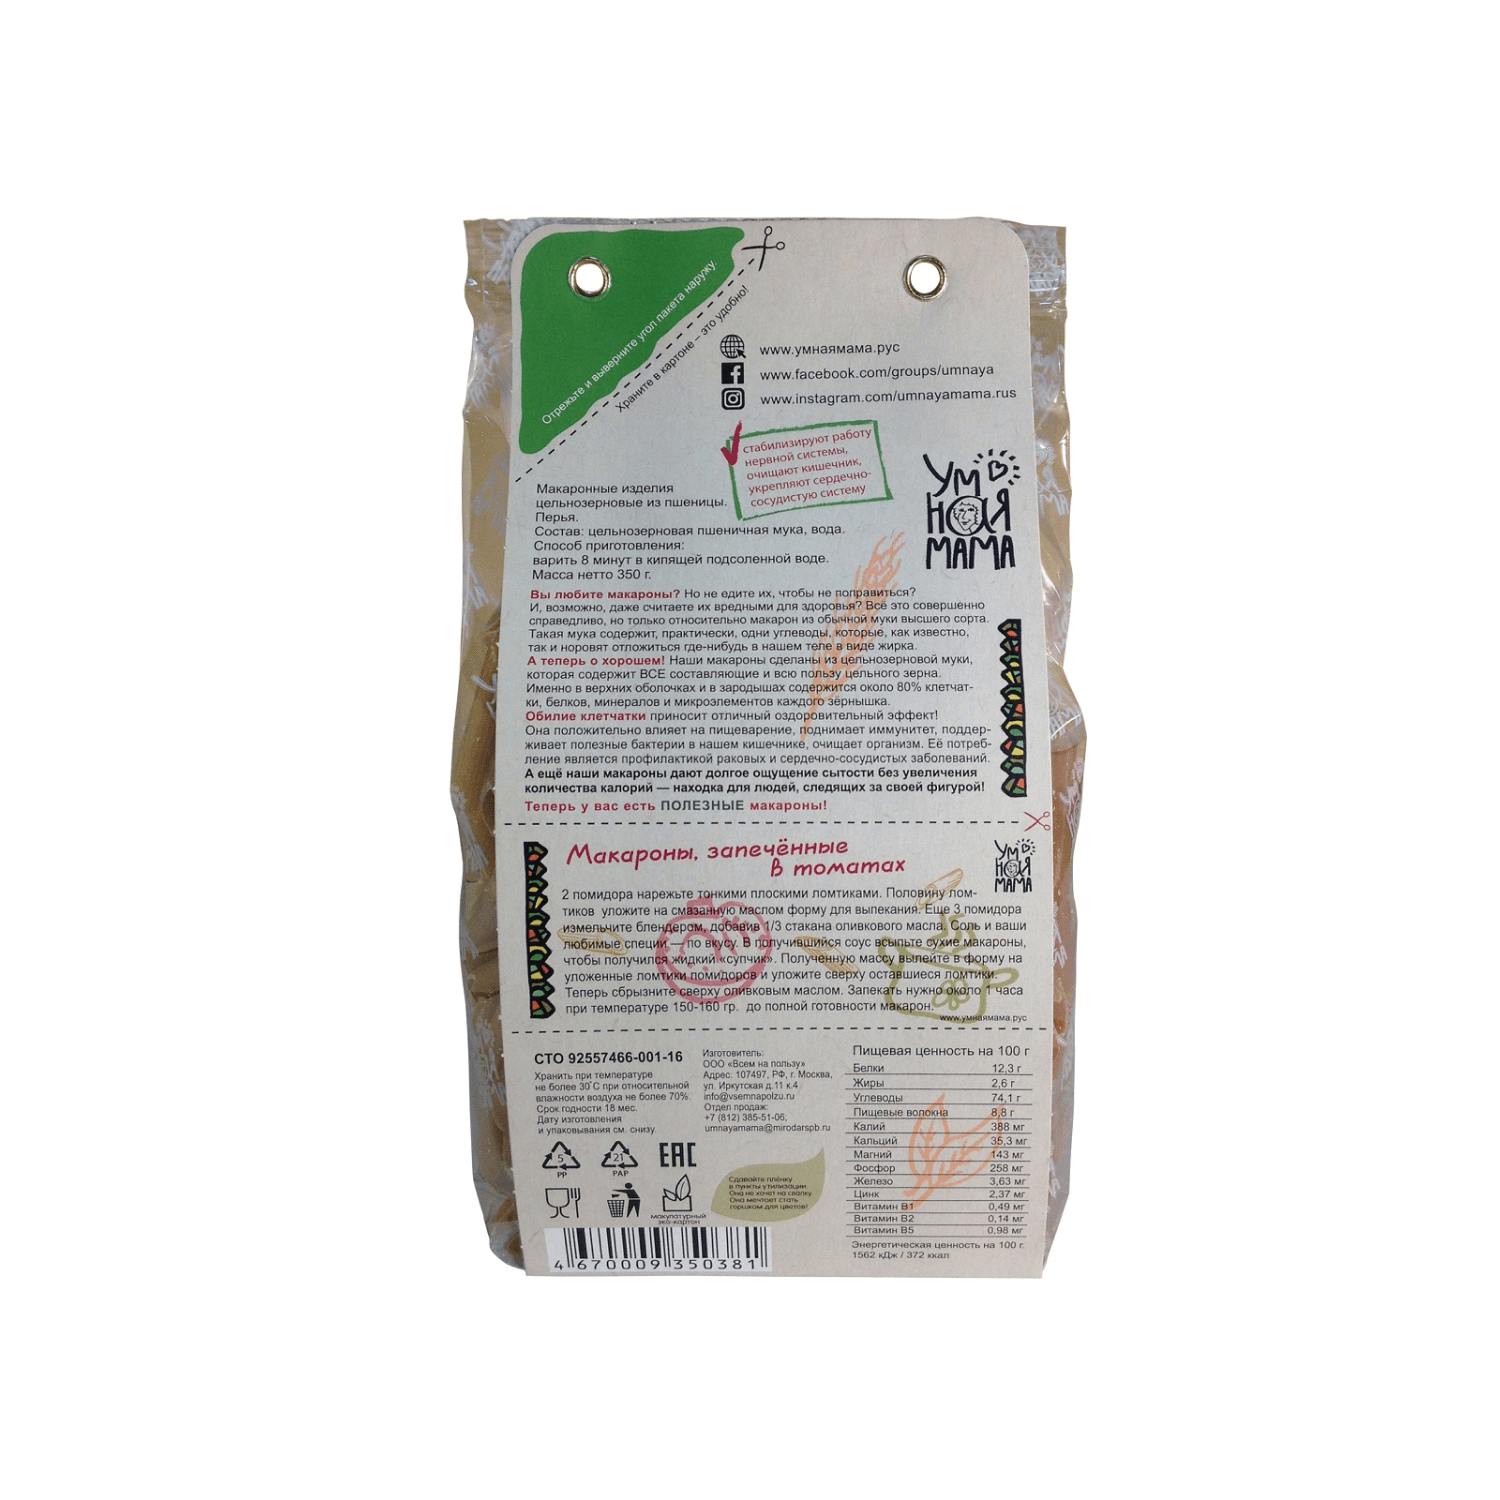 Отрежьте и выверните угол пакета наружу.
Храните в картоне – это удобно!
www.умнаямама.рус
www.facebook.com/groups/umnaya
www.instagram.com/umnayamama.rus
стабилизируют работу
нервной системы,
очищают кишечник,
укрепляют сердечно-
сосудистую систему
УМ
НАЯ
МАМА
Макаронные изделия
цельнозерновые из пшеницы.
Перья.
Состав: цельнозерновая пшеничная мука, вода.
Способ приготовления:
варить 8 минут в кипящей подсоленной воде.
Масса нетто 350 г.
Вы любите макароны? Но не едите их, чтобы не поправиться?
И, возможно, даже считаете их вредными для здоровья? Всё это совершенно
справедливо, но только относительно макарон из обычной муки высшего сорта.
Такая мука содержит, практически, одни углеводы, которые, как известно,
так и норовят отложиться где-нибудь в нашем теле в виде жирка.
А теперь о хорошем! Наши макароны сделаны из цельнозерновой муки,
которая содержит ВСЕ составляющие и всю пользу цельного зерна.
Именно в верхних оболочках и в зародышах содержится около 80% клетчат-
ки, белков, минералов и микроэлементов каждого зёрнышка.
Обилие клетчатки приносит отличный оздоровительный эффект!
Она положительно влияет на пищеварение, поднимает иммунитет, поддер-
живает полезные бактерии в нашем кишечнике, очищает организм. Её потреб-
ление является профилактикой раковых и сердечно-сосудистых заболеваний.
А ещё наши макароны дают долгое ощущение сытости без увеличения
количества калорий — находка для людей, следящих за своей фигурой!
Теперь у вас есть ПОЛЕЗНЫЕ макароны!
Макароны, запечённые
в томатах
УМ
НАЯ
МАМА
2 помидора нарежьте тонкими плоскими ломтиками. Половину лом-
тиков уложите на смазанную маслом форму для выпекания. Еще 3 помидора
измельчите блендером, добавив 1/3 стакана оливкового масла. Соль и ваши
любимые специи — по вкусу. В получившийся соус всыпьте сухие макароны,
чтобы получился жидкий «супчик». Полученную массу вылейте в форму на
уложенные ломтики помидоров и уложите сверху оставшиеся ломтики.
Теперь сбрызните сверху оливковым маслом. Запекать нужно около 1 часа
при температуре 150-160 гр. до полной готовности макарон.
www.умнаямама.рус
СТО 92557466-001-16
Хранить при температуре
не более 30˚С при относительной
влажности воздуха не более 70%.
Срок годности 18 мес.
Дату изготовления
и упаковывания см. снизу.
Изготовитель:
ООО «Всем на пользу»
Адрес: 107497, РФ, г. Москва,
ул. Иркутская д.11 к.4
info@vsemnapolzu.ru
Отдел продаж:
+7 (812) 385-51-06,
umnayamama@mirodarspb.ru
5
PP
21
PAP
EAC
макулатурный
эко-картон
Сдавайте плёнку
в пункты утилизации.
Она не хочет на свалку.
Она мечтает стать
горшком для цветов!
4 670009 350381
Пищевая ценность на 100 г
Белки 12,3 г
Жиры 2,6 г
Углеводы 74,1 г
Пищевые волокна 8,8 г
Калий 388 мг
Кальций 35,3 мг
Магний 143 мг
Фосфор 258 мг
Железо 3,63 мг
Цинк 2,37 мг
Витамин B1 0,49 мг
Витамин B2 0,14 мг
Витамин B5 0,98 мг
Энергетическая ценность на 100 г.
1562 кДж / 372 ккал